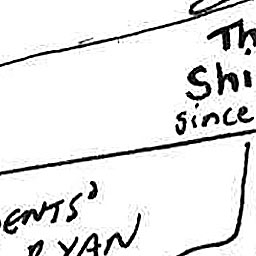 Th
Shi
since
ENTS'
RYAN